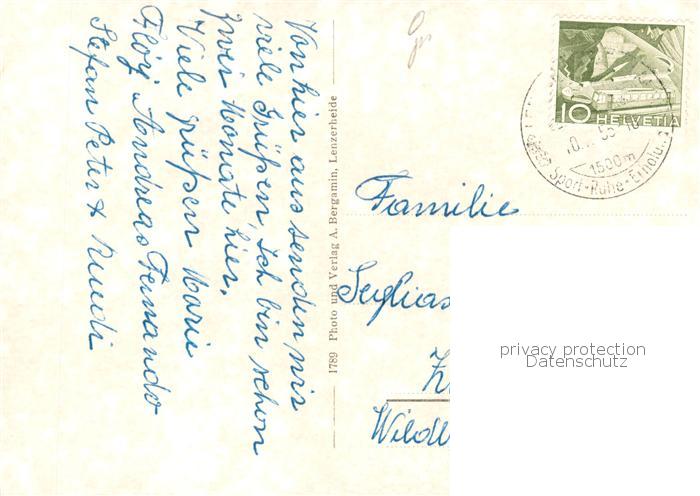 Von hier aus senden wir
viele Grüßen, ich bin schon
zwei Monate hier.
Viele grüßen Marie
Andreas Fernando
Stefan Peter & Ruedi
1789 Photo und Verlag A. Bergamin, Lenzerheide
10 HELVETIA
1500 m
Sport-Ruhe-Erholung
Familie
privacy protection
Datenschutz